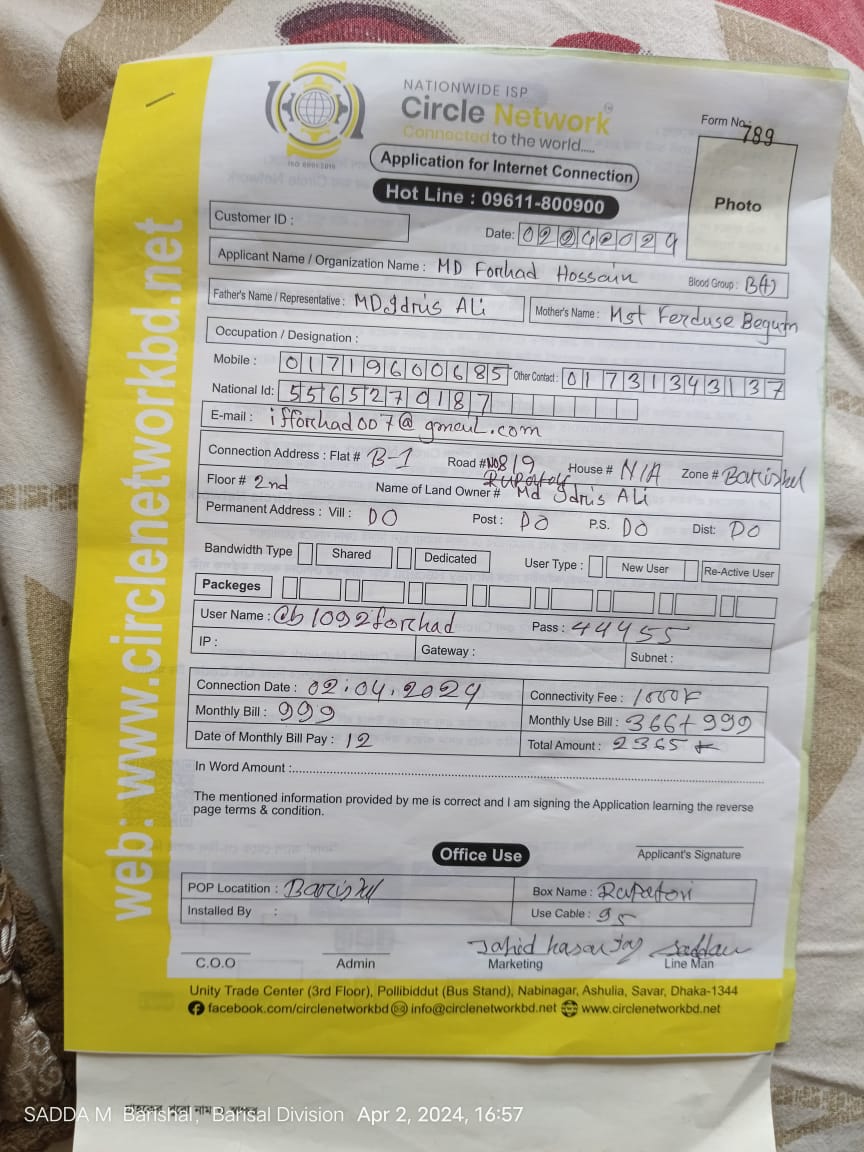 NATIONWIDE ISP
Circle Network
Connected to the world.....
ISO 9001:2015
Form No.: 789
Application for Internet Connection
Hot Line : 09611-800900
Photo
Customer ID :
Date: 02042024
Applicant Name / Organization Name : MD Forhad Hossain Blood Group : B(+)
Father's Name / Representative : MD. Idris Ali Mother's Name : Mst Ferduse Begum
Occupation / Designation :
Mobile : 01719600685 Other Contact : 01731343137
National Id: 5565270187
E-mail : ifforhad007@gmail.com
Connection Address : Flat # B-1 Road # 819 House # N/A Zone # Barishal
Floor # 2nd Name of Land Owner # Md Idris Ali
Permanent Address : Vill : DO Post : DO P.S. DO Dist: DO
Bandwidth Type Shared Dedicated User Type : New User Re-Active User
Packeges
User Name : Cb1092forhad Pass : 44455
IP : Gateway : Subnet :
Connection Date : 02.04.2024 Connectivity Fee : 1000
Monthly Bill : 999 Monthly Use Bill : 366+999
Date of Monthly Bill Pay : 12 Total Amount : 2365
In Word Amount :
The mentioned information provided by me is correct and I am signing the Application learning the reverse
page terms & condition.
Office Use
Applicant's Signature
POP Locatition : Barishal Box Name : Rupatori
Installed By : Use Cable : 95
Jahid hasan Saddam
C.O.O Admin Marketing Line Man
Unity Trade Center (3rd Floor), Pollibiddut (Bus Stand), Nabinagar, Ashulia, Savar, Dhaka-1344
facebook.com/circlenetworkbd info@circlenetworkbd.net www.circlenetworkbd.net
web: www.circlenetworkbd.net
SADDA M Barishal, Barisal Division Apr 2, 2024, 16:57